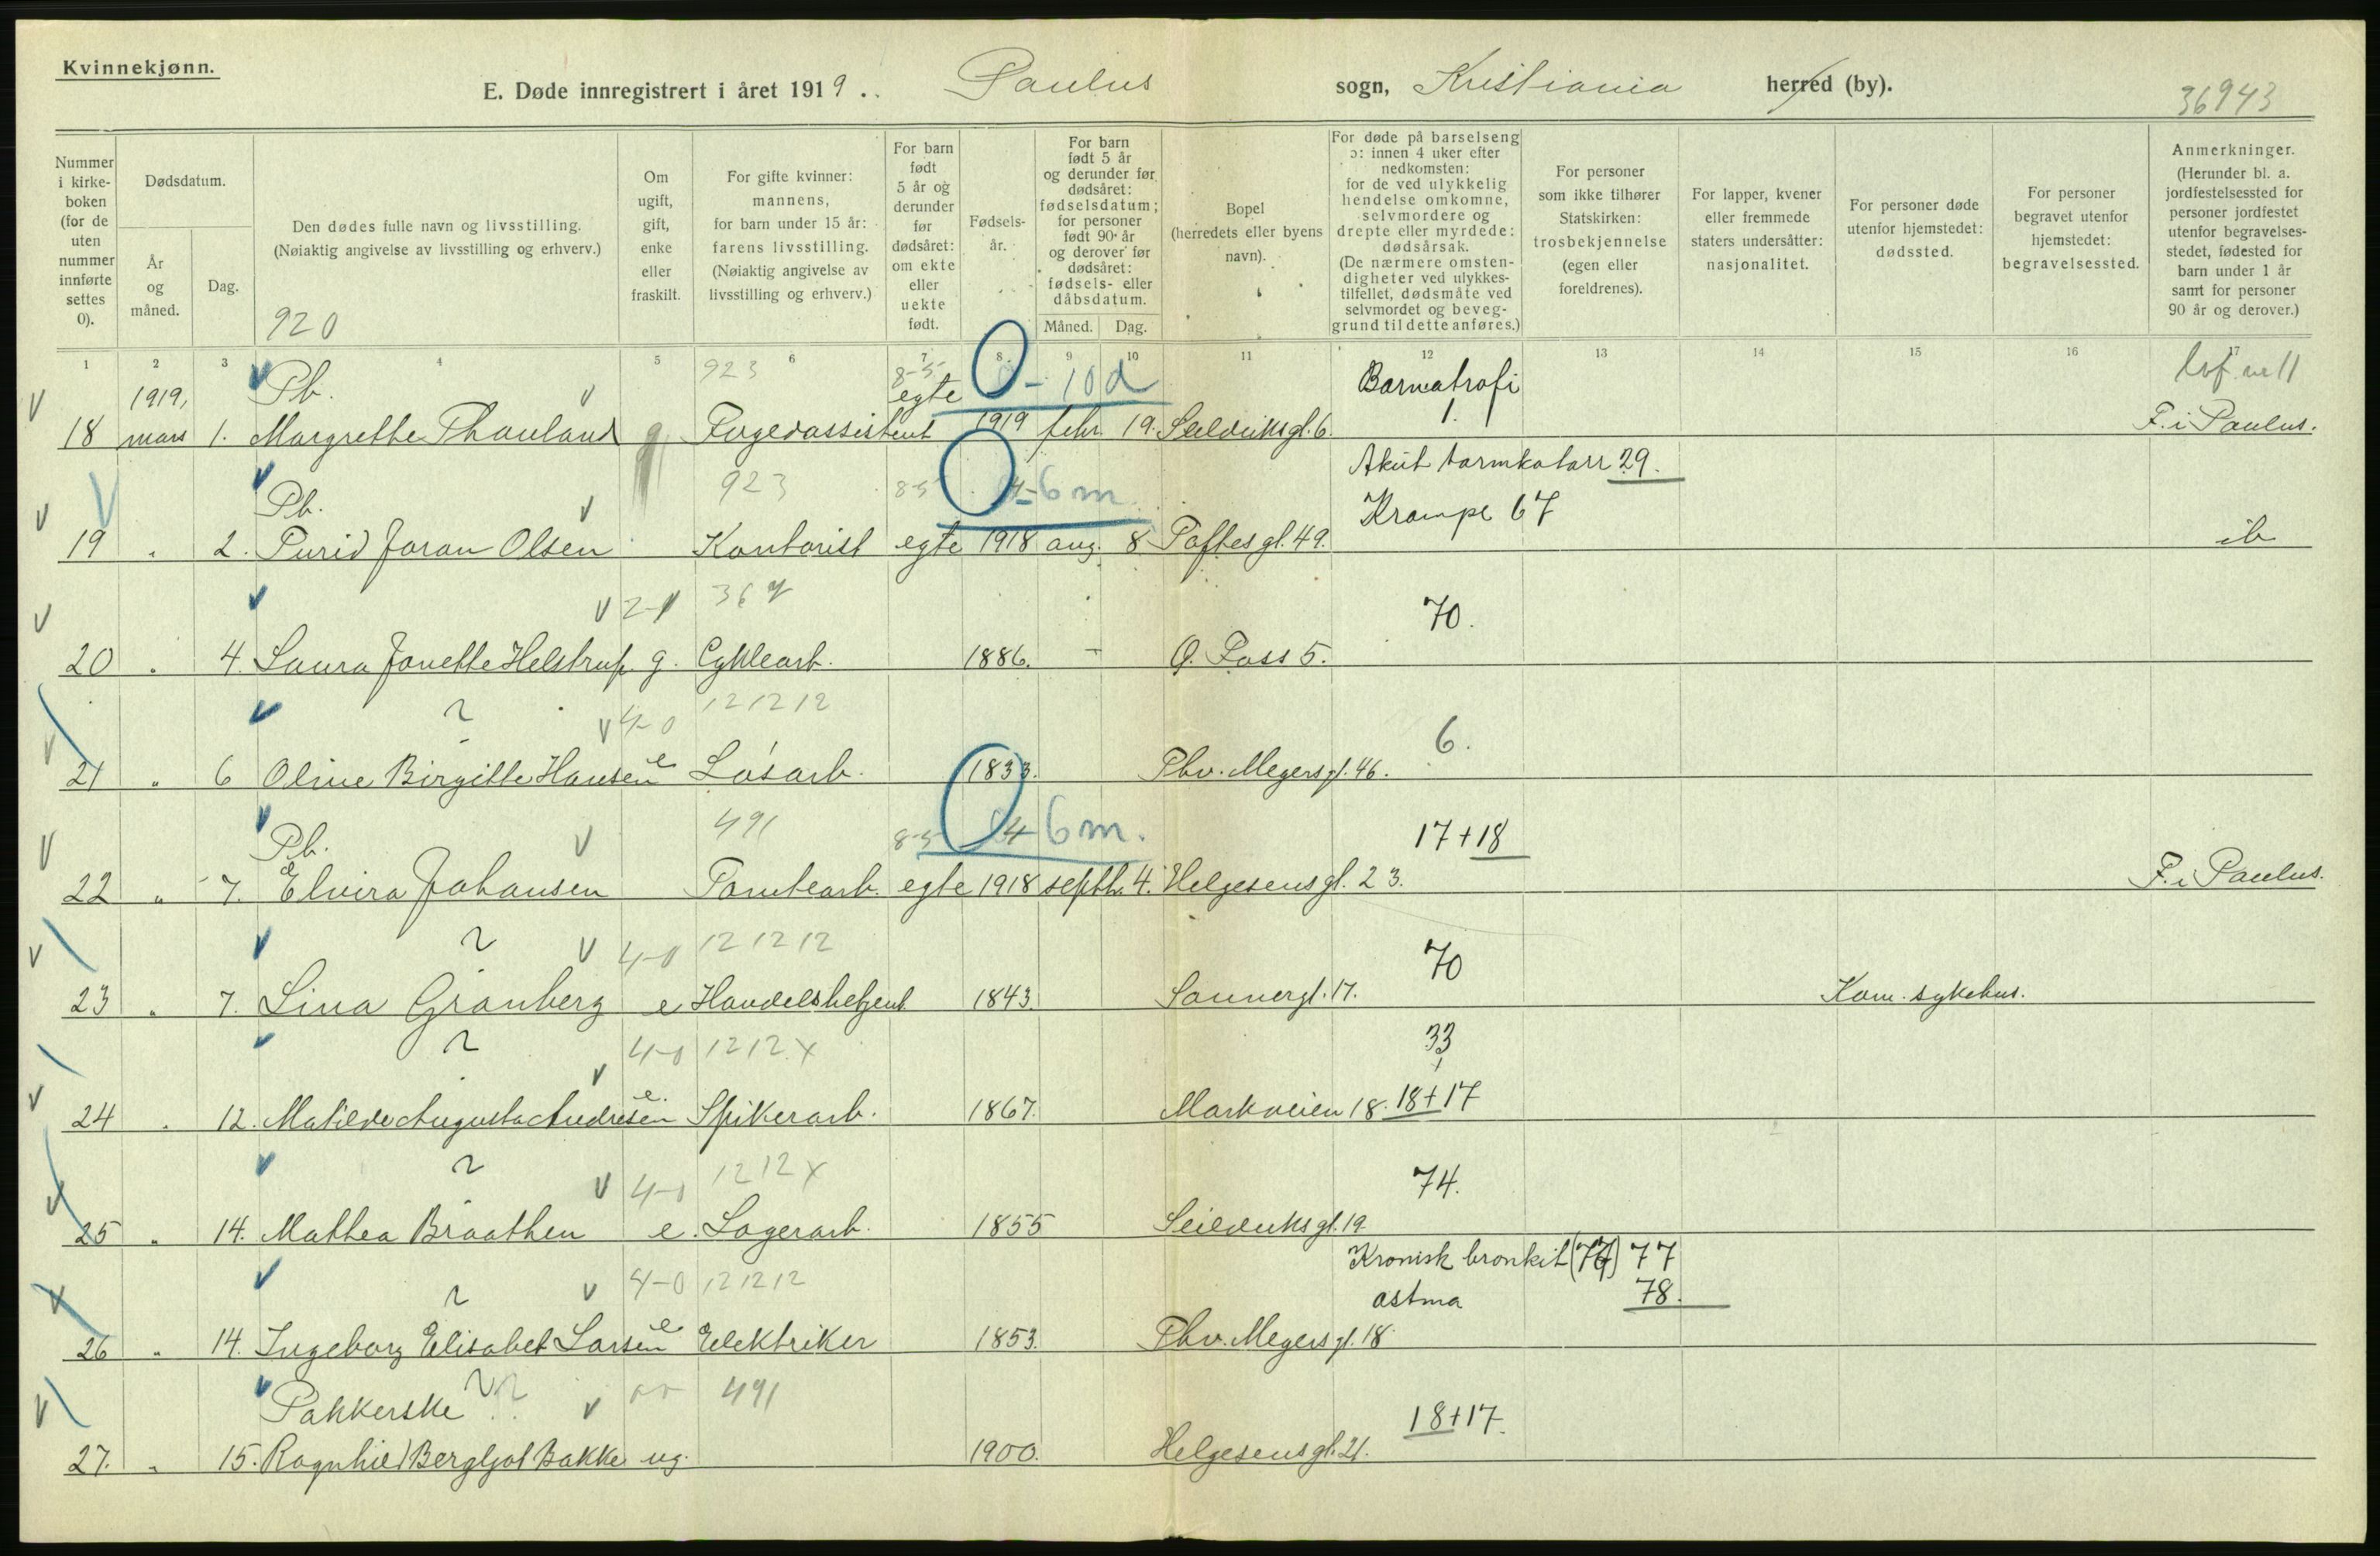 Kvinnekjønn.
E. Døde innregistrert i året 1919. Paulus sogn, Kristiania herred (by). 36943
Nummer i kirkeboken (for de uten nummer innførte settes 0).
Dødsdatum.
År og måned.
Dag.
Den dødes fulle navn og livsstilling.
(Nøiaktig angivelse av livsstilling og erhverv.)
920
Om ugift, gift, enke eller fraskilt.
For gifte kvinner: mannens, for barn under 15 år: farens livsstilling. (Nøiaktig angivelse av livsstilling og erhverv.)
For barn født 5 år og derunder før dødsåret: om ekte eller uekte født.
Fødselsår.
For barn født 5 år og derunder før dødsåret: fødselsdatum; for personer født 90 år og derover før dødsåret: fødsels- eller dåbsdatum.
Måned. Dag.
Bopel (herredets eller byens navn).
For døde på barselseng ɔ: innen 4 uker efter nedkomsten: for de ved ulykkelig hendelse omkomne, selvmordere og drepte eller myrdede: dødsårsak. (De nærmere omstendigheter ved ulykkestilfellet, dødsmåte ved selvmordet og beveggrund til dette anføres.)
For personer som ikke tilhører Statskirken: trosbekjennelse (egen eller foreldrenes).
For lapper, kvener eller fremmede staters undersåtter: nasjonalitet.
For personer døde utenfor hjemstedet: dødssted.
For personer begravet utenfor hjemstedet: begravelsessted.
Anmerkninger. (Herunder bl. a. jordfestelsessted for personer jordfestet utenfor begravelsesstedet, fødested for barn under 1 år samt for personer 90 år og derover.)
1 2 3 4 5 6 7 8 9 10 11 12 13 14 15 16 17
1919, Pb. 923 8-5 egte 0 - 10 d Barnatrofi
18 mars 1. Margrethe Thauland Fogedassistent 1919 febr. 19. Seilduksgt. 6. 1. F. i Paulus.
Pb. 923 8-5 - 6 m. Akut tarmkatarr 29.
Krampe 67
19 " 2. Turid Joran Olsen Kontorist egte 1918 aug. 8 Toftesgt. 49. ib
2-1 367 70.
20 " 4. Laura Janette Helstrup g. Cyklearb. 1886. - Ø. Foss 5.
4-0 121212 6.
21 " 6 Oline Birgitte Hansen e Løsarb. 1833. Thv. Meyersgt. 46.
Pb. 491 8-5 4 6 m. 17+18
22 " 7. Elvira Johansen Tomtearb. egte 1918 septbr. 4. Helgesensgt. 23. F. i Paulus.
4-0 121212 70
23 " 7. Lina Granberg e Handelsbetjent 1843. Sannergt. 17. Kom. sykehus.
4-0 1212x 33
24 " 12. Matilde Augusta Andresen e. Spikerarb. 1867. Markveien 18. 18+17
4-0 1212x 74.
25 " 14. Mathea Braathen e. Lagerarb. 1855 Seilduksgt. 19.
4-0 121212 Kronisk bronkit 77
astma 78.
26 " 14. Ingeborg Elisabet Larsen e Elektriker 1853. Thv. Meyersgt. 18.
Pakkerske 491 18+17.
27. " 15. Ragnhild Bergljot Bakke ug. 1900. Helgesensgt. 21.